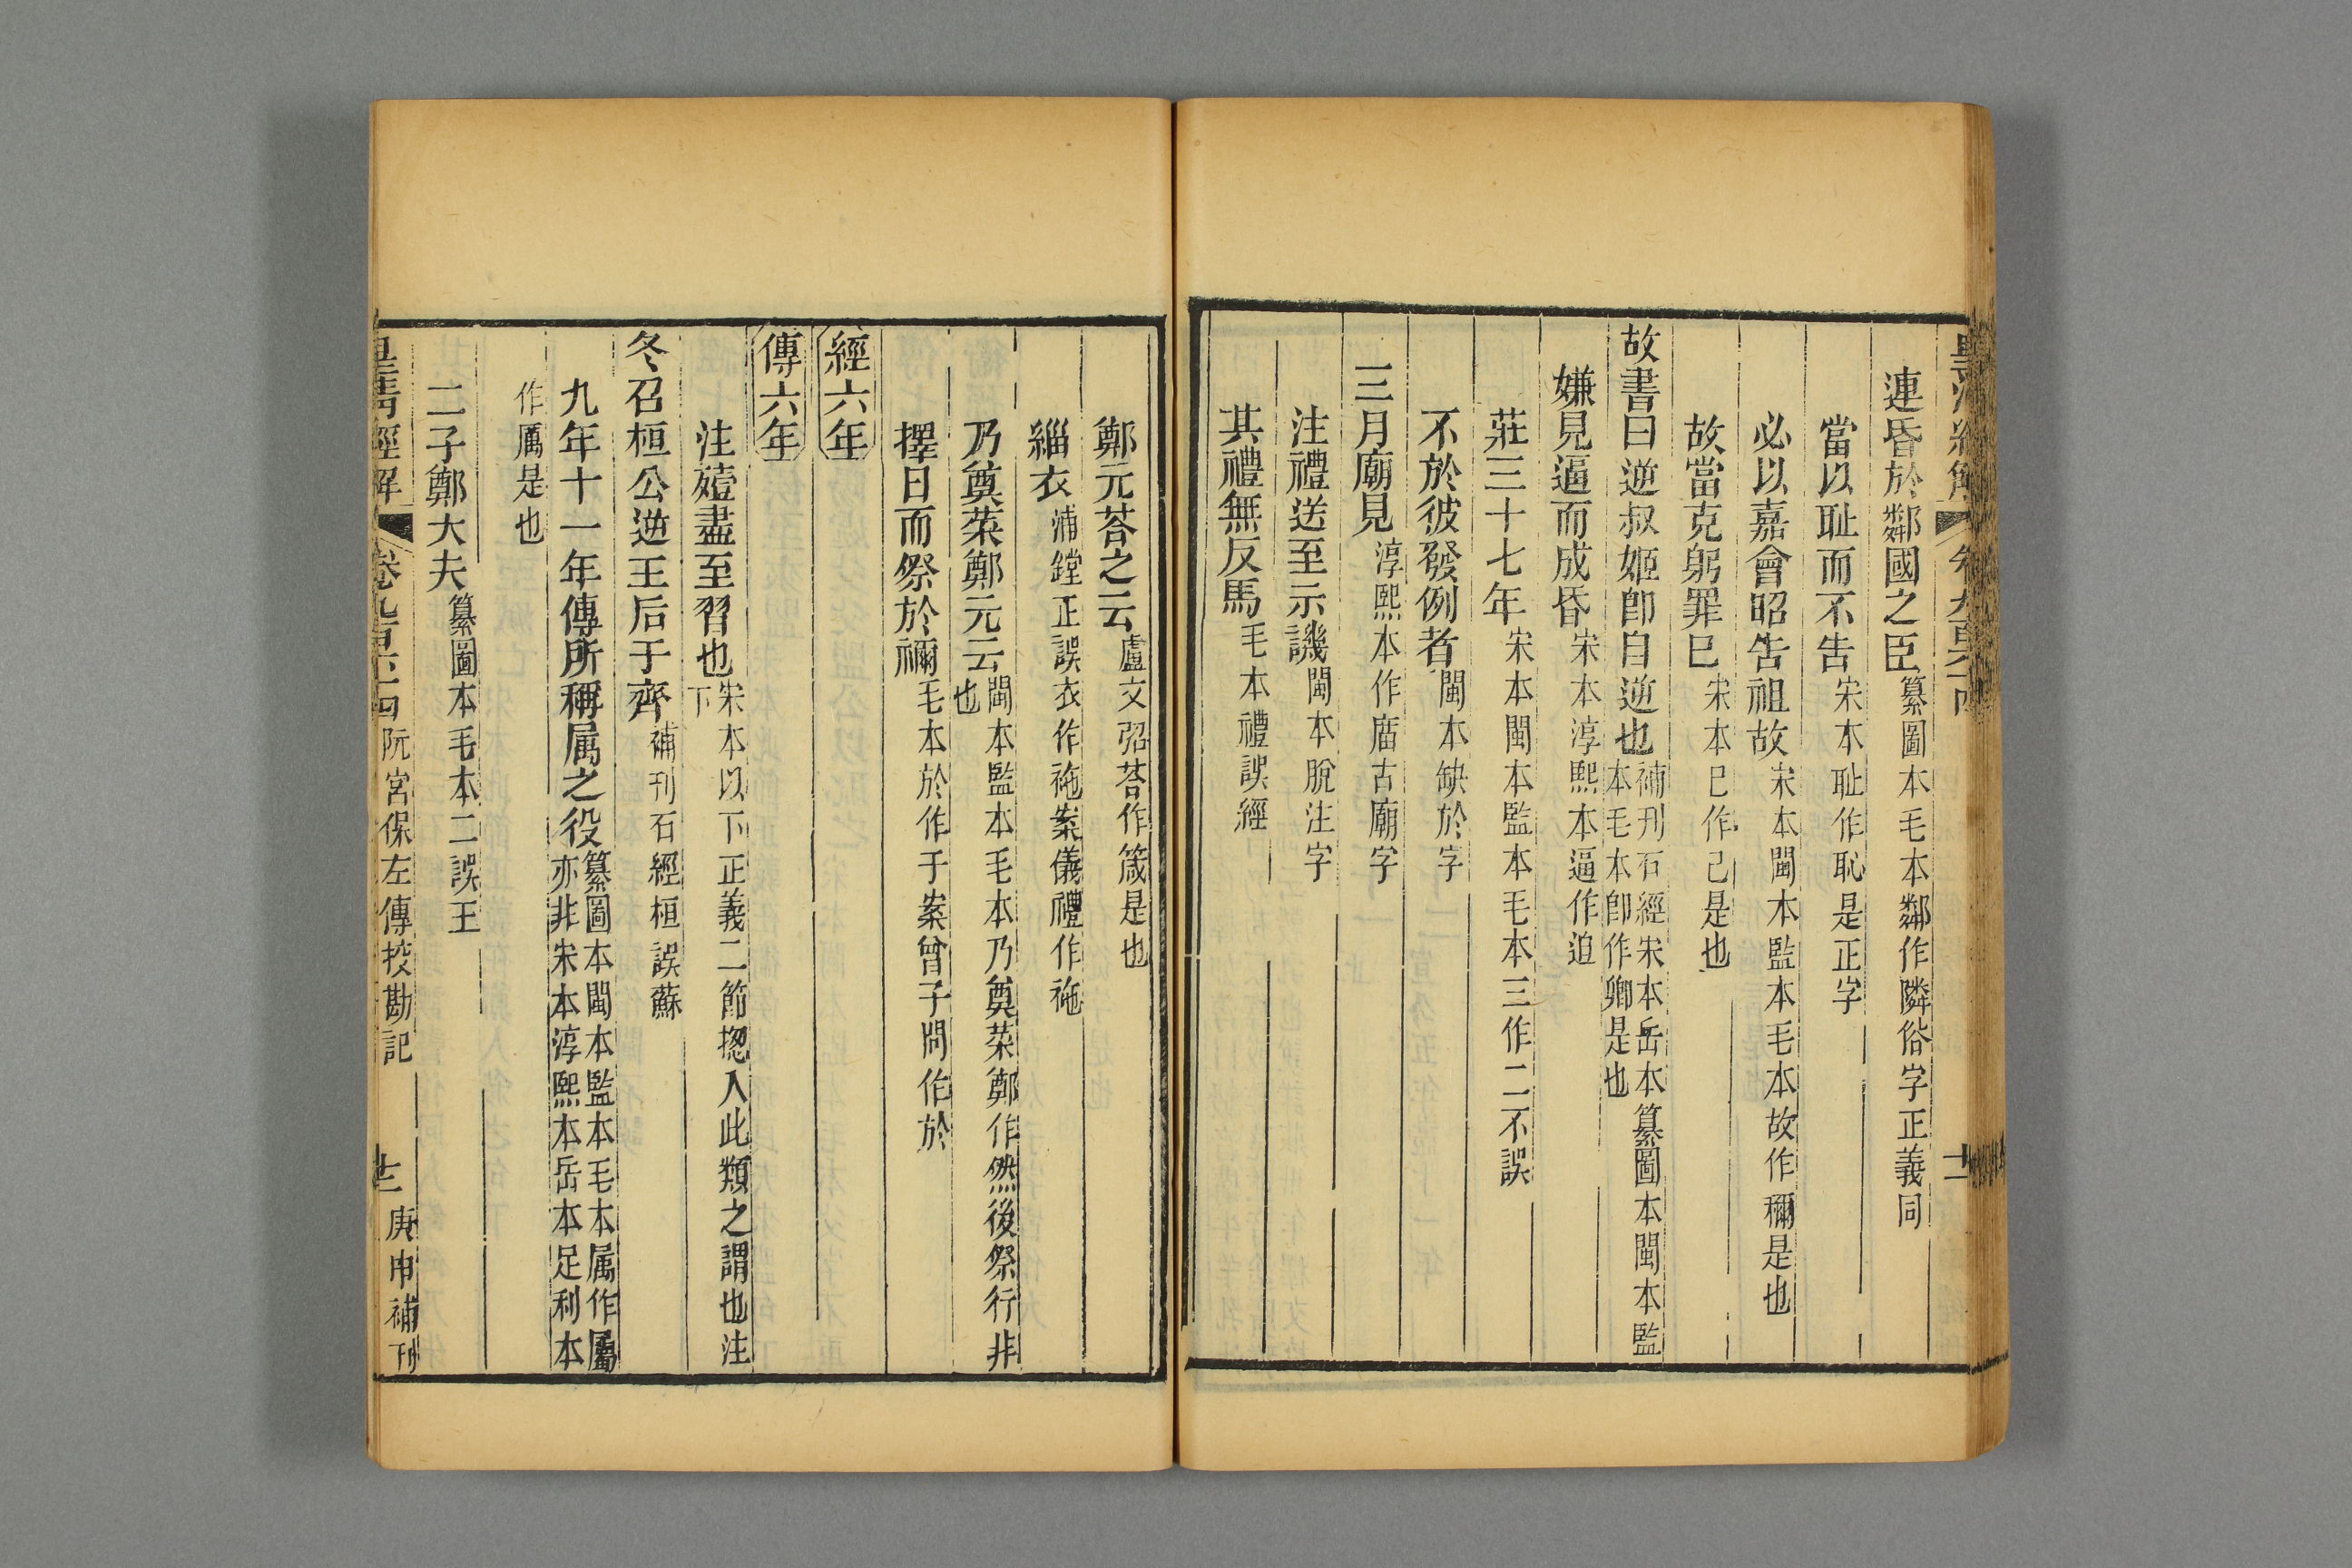 連昏於鄰國之臣纂圖本毛本鄰作隣俗字正義同
當以耻而不告宋本耻作恥是正字
必以嘉會昭告祖故宋本閩本監本毛本故作禰是也
故當克躬罪巳宋本巳作己是也
故書曰逆叔姬卽自逆也補刊石經宋本岳本纂圖本閩本監本毛本卽作卿是也
嫌見逼而成昏宋本淳熙本逼作迫
莊三十七年宋本閩本監本毛本三作二不誤
不於彼發例者閩本缺於字
三月廟見淳熙本作庿古廟字
注禮送至示譏閩本脫注字
其禮無反馬毛本禮誤經
鄭元荅之云盧文弨荅作箴是也
緇衣浦鏜正誤衣作袘案儀禮作袘
乃奠菜鄭元云閩本監本毛本乃奠菜鄭作然後祭行非也
擇日而祭於禰毛本於作于案曾子問作於
經六年
傳六年
注殪盡至習也宋本以下正義二節揔入此類之謂也注下
冬召桓公逆王后于齊補刊石經桓誤蘇
九年十一年傳所稱属之役纂圖本閩本監本毛本属作屬亦非宋本淳熙本岳本足利本
作厲是也
二子鄭大夫纂圖本毛本二誤王
皇清經解 卷九百五十四 阮宮保左傳挍勘記 十二 庚申補刊